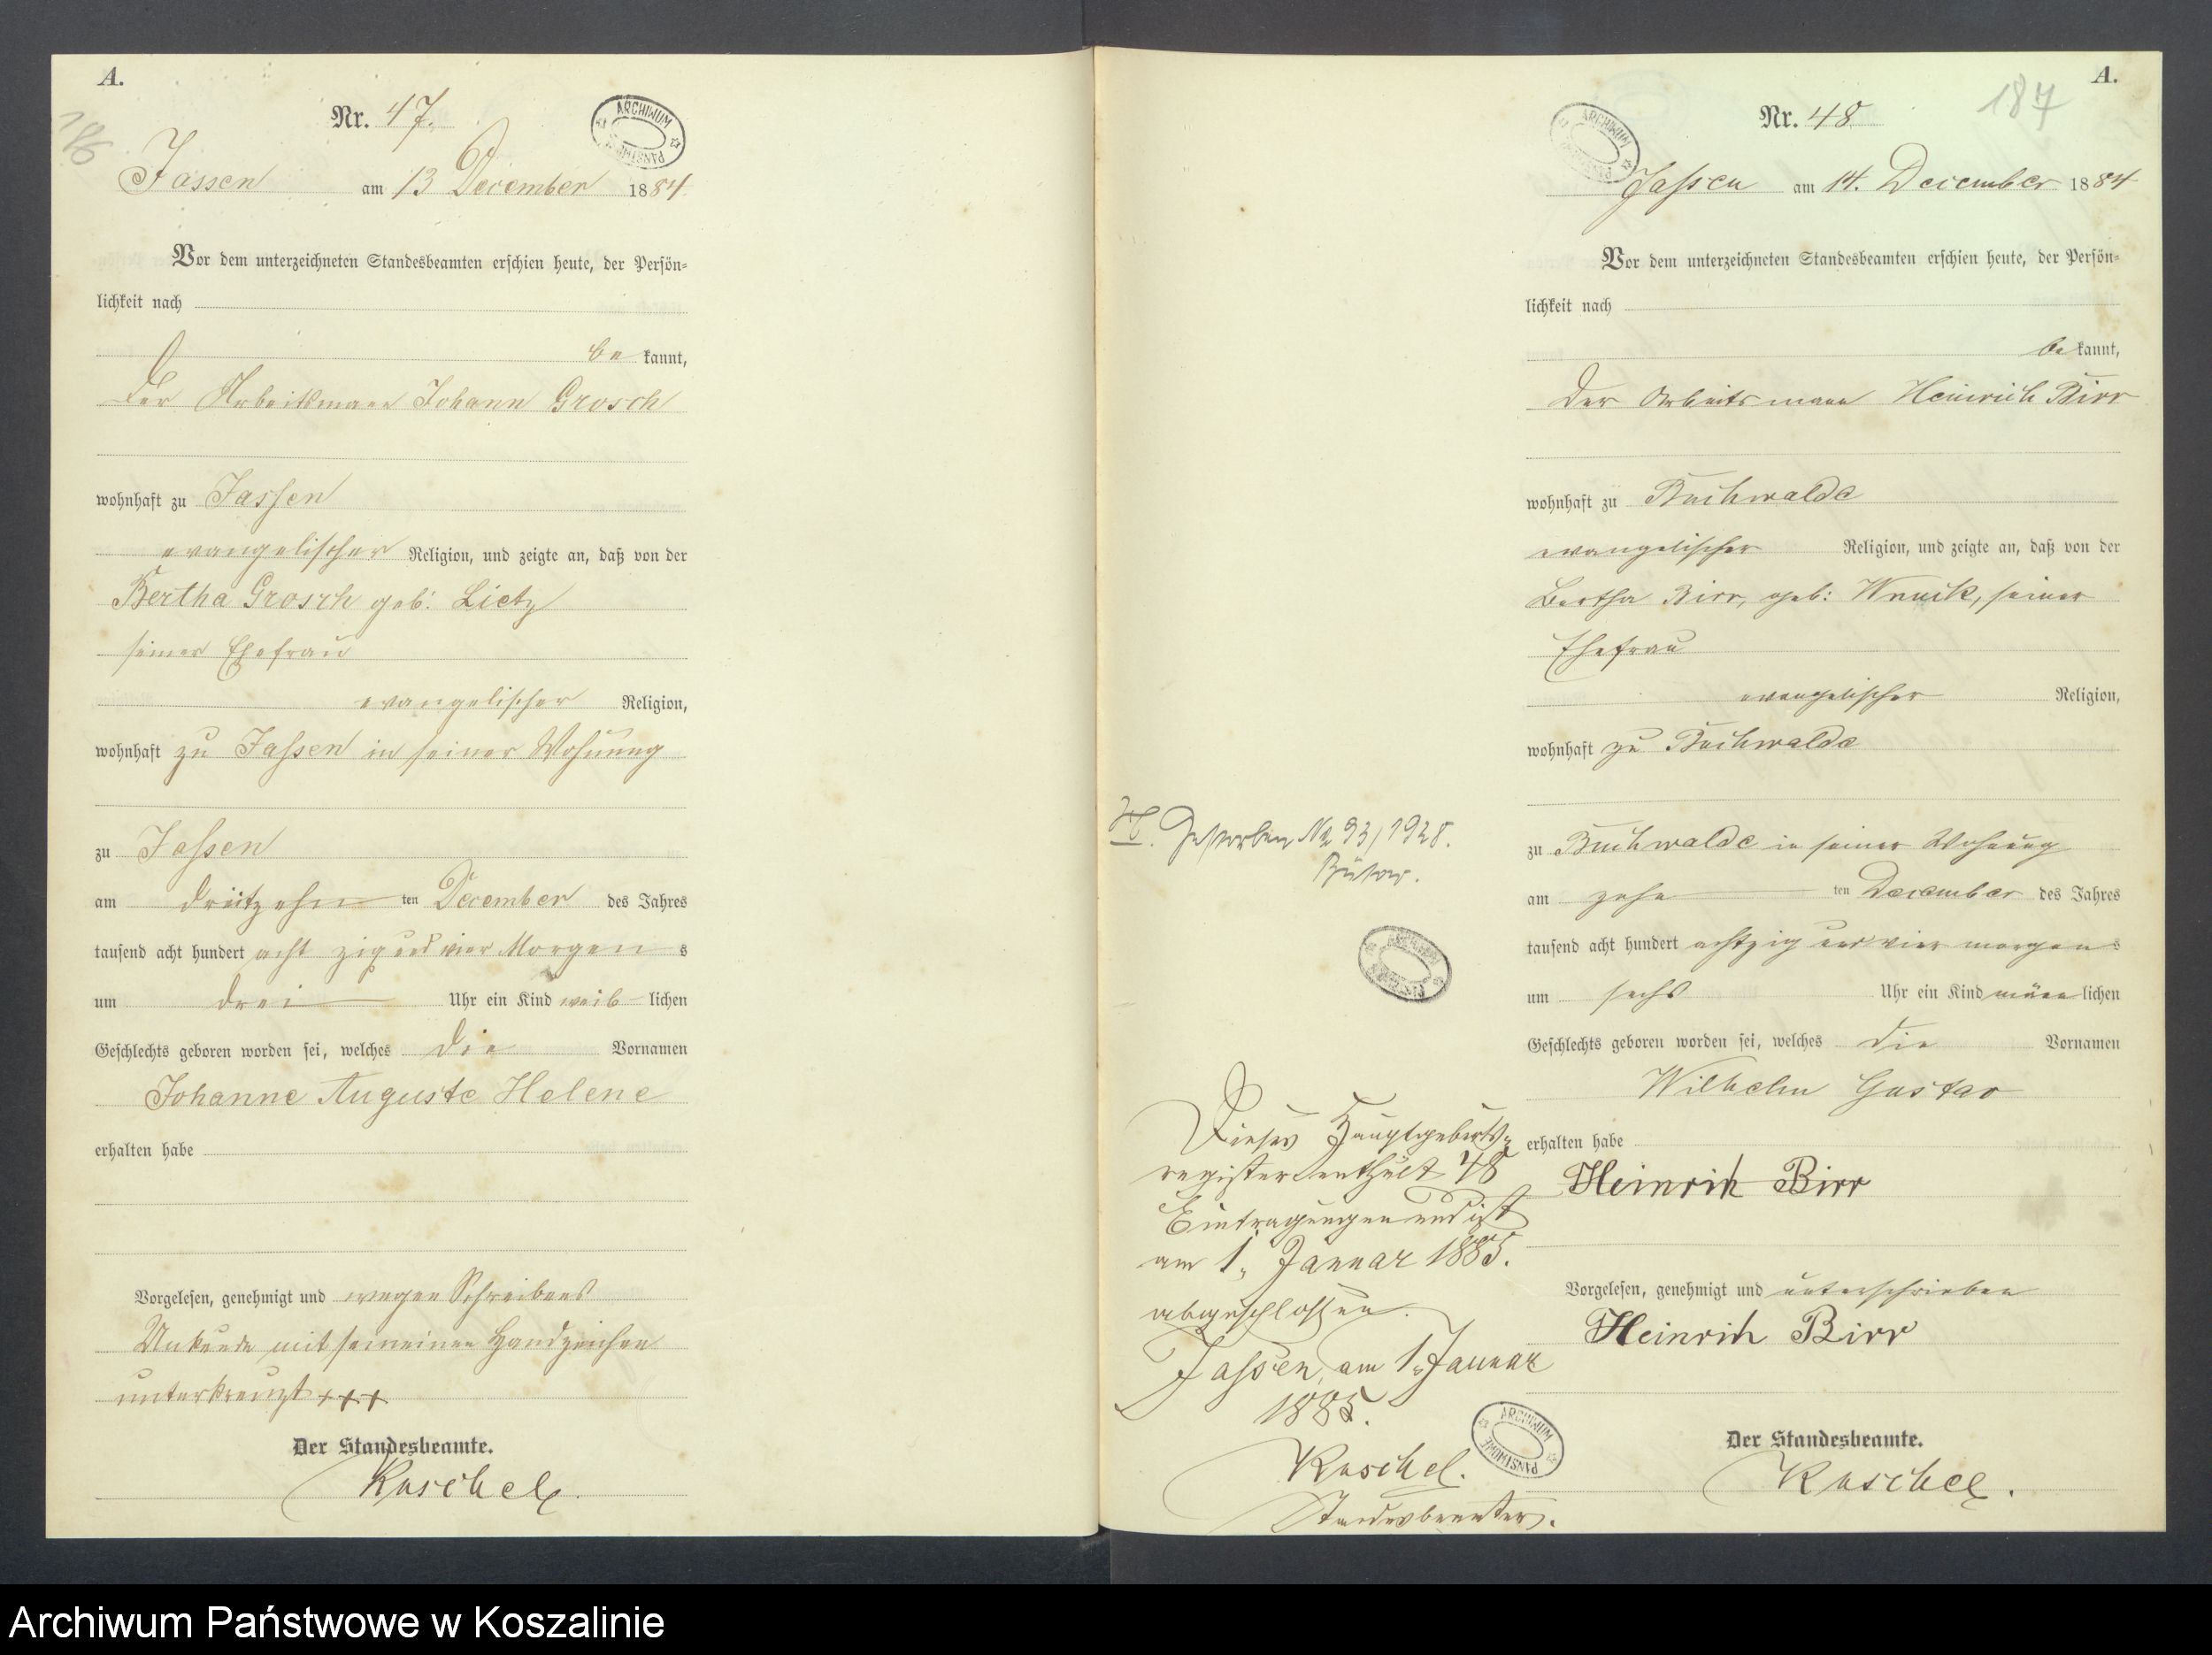 A.
186
Nr. 47.
ARCHIWUM PAŃSTWOWE
Jassen am 13 December 1884.
Vor dem unterzeichneten Standesbeamten erschien heute, der Persön-
lichkeit nach
be kannt,
der Arbeitsmann Johann Grosch
wohnhaft zu Jassen
evangelischer Religion, und zeigte an, daß von der
Bertha Grosch geb. Lietz
seiner Ehefrau
evangelischer Religion,
wohnhaft zu Jassen in seiner Wohnung
zu Jassen
am dreitzehn ten December des Jahres
tausend acht hundert acht zig und vier Morgen s
um drei Uhr ein Kind weib lichen
Geschlechts geboren worden sei, welches die Vornamen
Johanne Auguste Helene
erhalten habe
Vorgelesen, genehmigt und wegen Schreibens
Unkunde mit seineinen Handzeichen
unterkreuzt +++
Der Standesbeamte.
Kaschel.
A.
187
Nr. 48
ARCHIWUM PAŃSTWOWE
Jassen am 14. December 1884
Vor dem unterzeichneten Standesbeamten erschien heute, der Persön-
lichkeit nach
be kannt,
der Arbeitsmann Heinrich Birr
wohnhaft zu Buchwalde
evangelischer Religion, und zeigte an, daß von der
Bertha Birr, geb: Wnuck, seiner
Ehefrau
evangelischer Religion,
wohnhaft zu Buchwalde
zu Buchwalde in seiner Wohnung
am zehn ten December des Jahres
tausend acht hundert achtzig und vier morgen s
um sechs Uhr ein Kind männ lichen
Geschlechts geboren worden sei, welches die Vornamen
Wilhelm Gustav
erhalten habe
Heinrich Birr
Vorgelesen, genehmigt und unterschrieben
Heinrich Birr
Der Standesbeamte.
Kaschel.
Gestorben No 93/1928.
Bütow.
ARCHIWUM PAŃSTWOWE
Dieses Hauptgeburts-
register enthält 48
Eintragungen und ist
am 1. Januar 1885.
abgeschlossen.
Jassen, am 1. Januar
1885.
Kaschel.
Standesbeamter.
ARCHIWUM PAŃSTWOWE
Archiwum Państwowe w Koszalinie